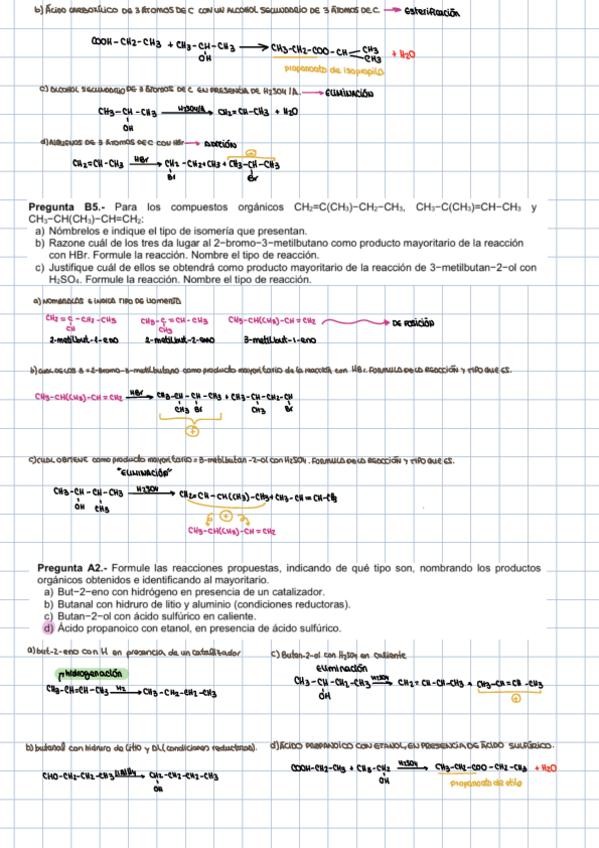 b) Ácido carboxílico de 3 átomos de C con un alcohol secundario de 3 átomos de C. → Esterificación
COOH-CH2-CH3 + CH3-CH-CH3 → CH3-CH2-COO-CH-CH3 + H2O
OH CH3
propanoato de isopropilo
c) Alcohol secundario de 3 átomos de C en presencia de H2SO4/Δ. → Eliminación
CH3-CH-CH3 H2SO4/Δ → CH2=CH-CH3 + H2O
OH
d) Alquenos de 3 átomos de C con HBr → Adición
CH2=CH-CH3 HBr → CH2-CH2+CH3 + CH3-CH-CH3
Br Br
Pregunta B5.- Para los compuestos orgánicos CH2=C(CH3)−CH2−CH3, CH3−C(CH3)=CH−CH3 y
CH3−CH(CH3)−CH=CH2:
a) Nómbrelos e indique el tipo de isomería que presentan.
b) Razone cuál de los tres da lugar al 2−bromo−3−metilbutano como producto mayoritario de la reacción
con HBr. Formule la reacción. Nombre el tipo de reacción.
c) Justifique cuál de ellos se obtendrá como producto mayoritario de la reacción de 3−metilbutan−2−ol con
H2SO4. Formule la reacción. Nombre el tipo de reacción.
a) Nombralos e indica tipo de isomería
CH2=C-CH2-CH3 CH3-C=CH-CH3 CH3-CH(CH3)-CH=CH2 → De posición
CH3
2-metilbut-1-eno 2-metilbut-2-eno 3-metilbut-1-eno
como producto mayoritario de la reacción con HBr.
CH3-CH(CH3)-CH=CH2 HBr → CH3-CH-CH-CH3 + CH3-CH-CH2-CH
CH3 Br CH3 Br
+
como producto mayoritario = 3-metilbutan-2-ol con H2SO4.
"Eliminación"
CH3-CH-CH-CH3 H2SO4 → CH2=CH-CH(CH3)-CH3 + CH3-CH=CH-CH3
OH CH3
+
CH3-CH(CH3)-CH=CH2
Pregunta A2.- Formule las reacciones propuestas, indicando de qué tipo son, nombrando los productos
orgánicos obtenidos e identificando al mayoritario.
a) But−2−eno con hidrógeno en presencia de un catalizador.
b) Butanal con hidruro de litio y aluminio (condiciones reductoras).
c) Butan−2−ol con ácido sulfúrico en caliente.
d) Ácido propanoico con etanol, en presencia de ácido sulfúrico.
a) but-2-eno con H en presencia de un catalizador
hidrogenación
CH3-CH=CH-CH3 H2 → CH3-CH2-CH2-CH3
c) Butan-2-ol con H2SO4 en caliente
Eliminación
CH3-CH-CH2-CH3 H2SO4 → CH2=CH-CH-CH3 + CH3-CH=CH-CH3
OH +
b) butanal con hidruro de litio y Al (condiciones reductoras).
CHO-CH2-CH2-CH3 LiAlH4 → CH2-CH2-CH2-CH3
OH
d) Ácido propanoico con etanol, en presencia de ácido sulfúrico.
COOH-CH2-CH3 + CH3-CH2 H2SO4 → CH3-CH2-COO-CH2-CH3 + H2O
OH
propanoato de etilo